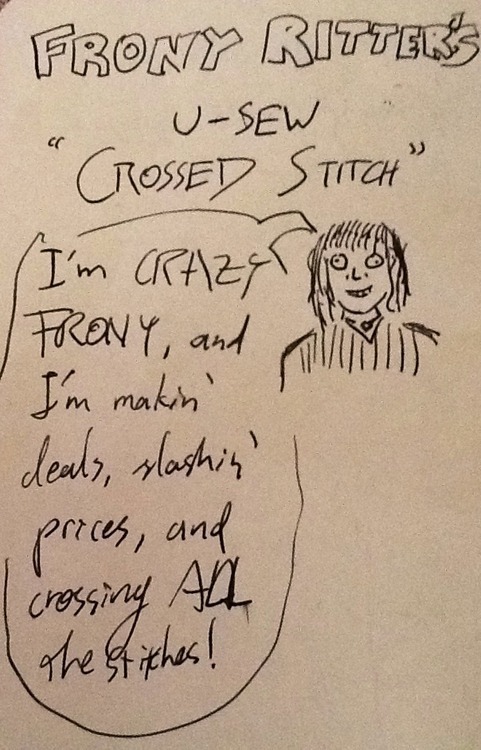 FRONY RITTER'S
U-SEW
"CROSSED STITCH"
I'm CRAZY
FRONY, and
I'm makin'
deals, slashin'
prices, and
crossing ALL
the stitches!